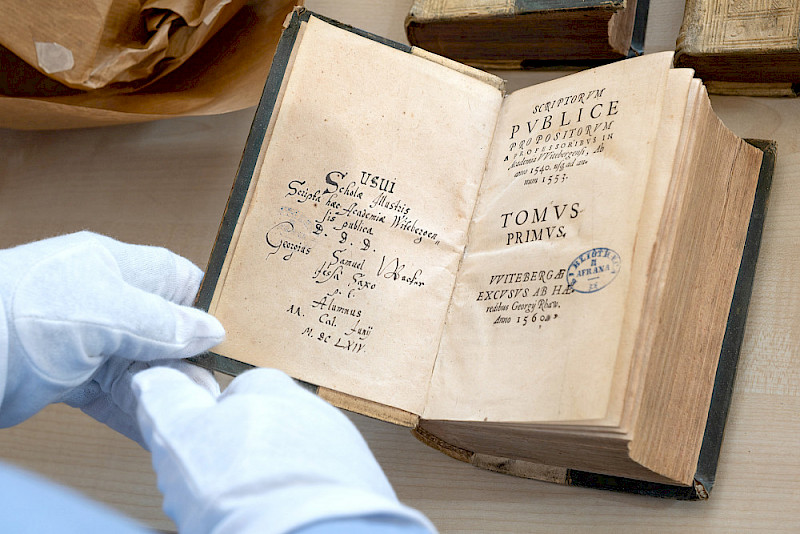 USUI
Scholæ Illustris
Scripta hæc Academiæ Witebergen„
sis publica
D. D. D.
Georgius Samuel
Saxo
Alumnus
AA. Cal. Junij
M. DC LXIV.
SCRIPTORVM
PVBLICE
PROPOSITORVM
A PROFESSORIBVS IN
Academia VVitebergensi, Ab
anno 1540. usq; ad an-
num 1553.
TOMVS
PRIMVS.
VVITEBERGÆ
EXCVSVS AB HÆ
redibus Georgij Rhaw.
Anno 1560.
BIBLIOTHECA
AFRANA